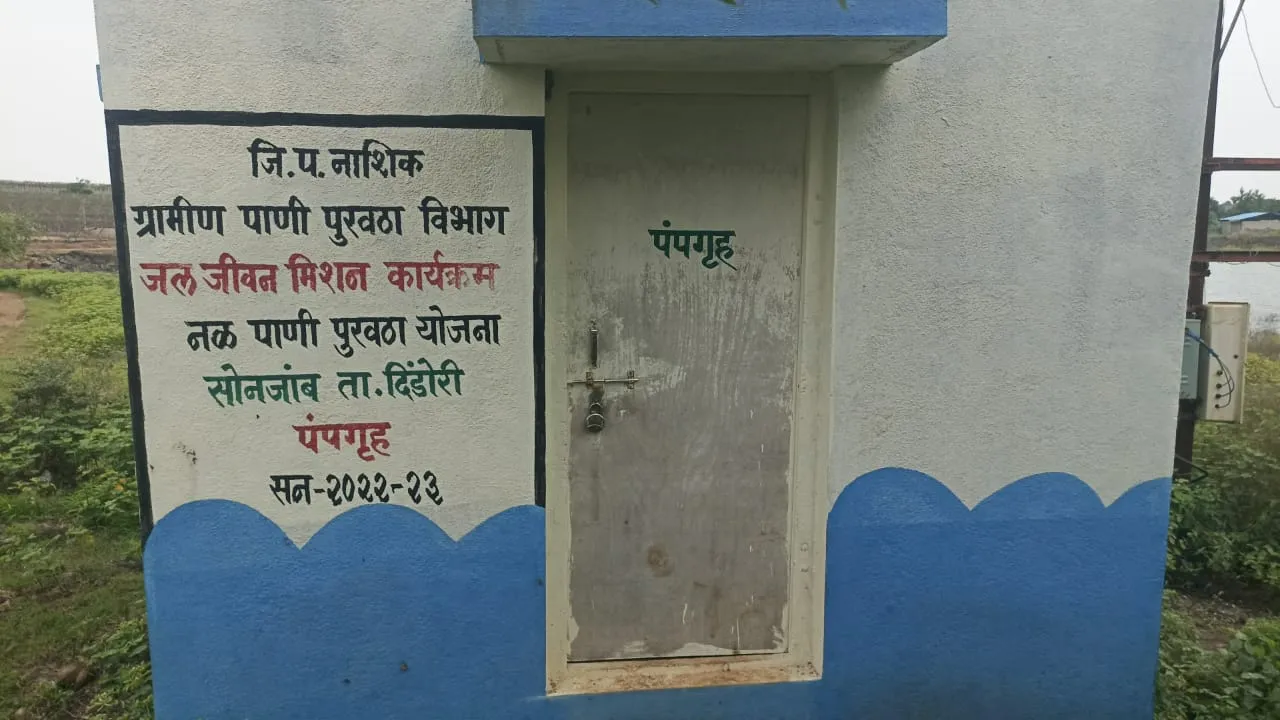 जि.प. नाशिक
ग्रामीण पाणी पुरवठा विभाग
जल जीवन मिशन कार्यक्रम
नळ पाणी पुरवठा योजना
सोनजांब ता.दिंडोरी
पंपगृह
सन-२०२२-२३
पंपगृह